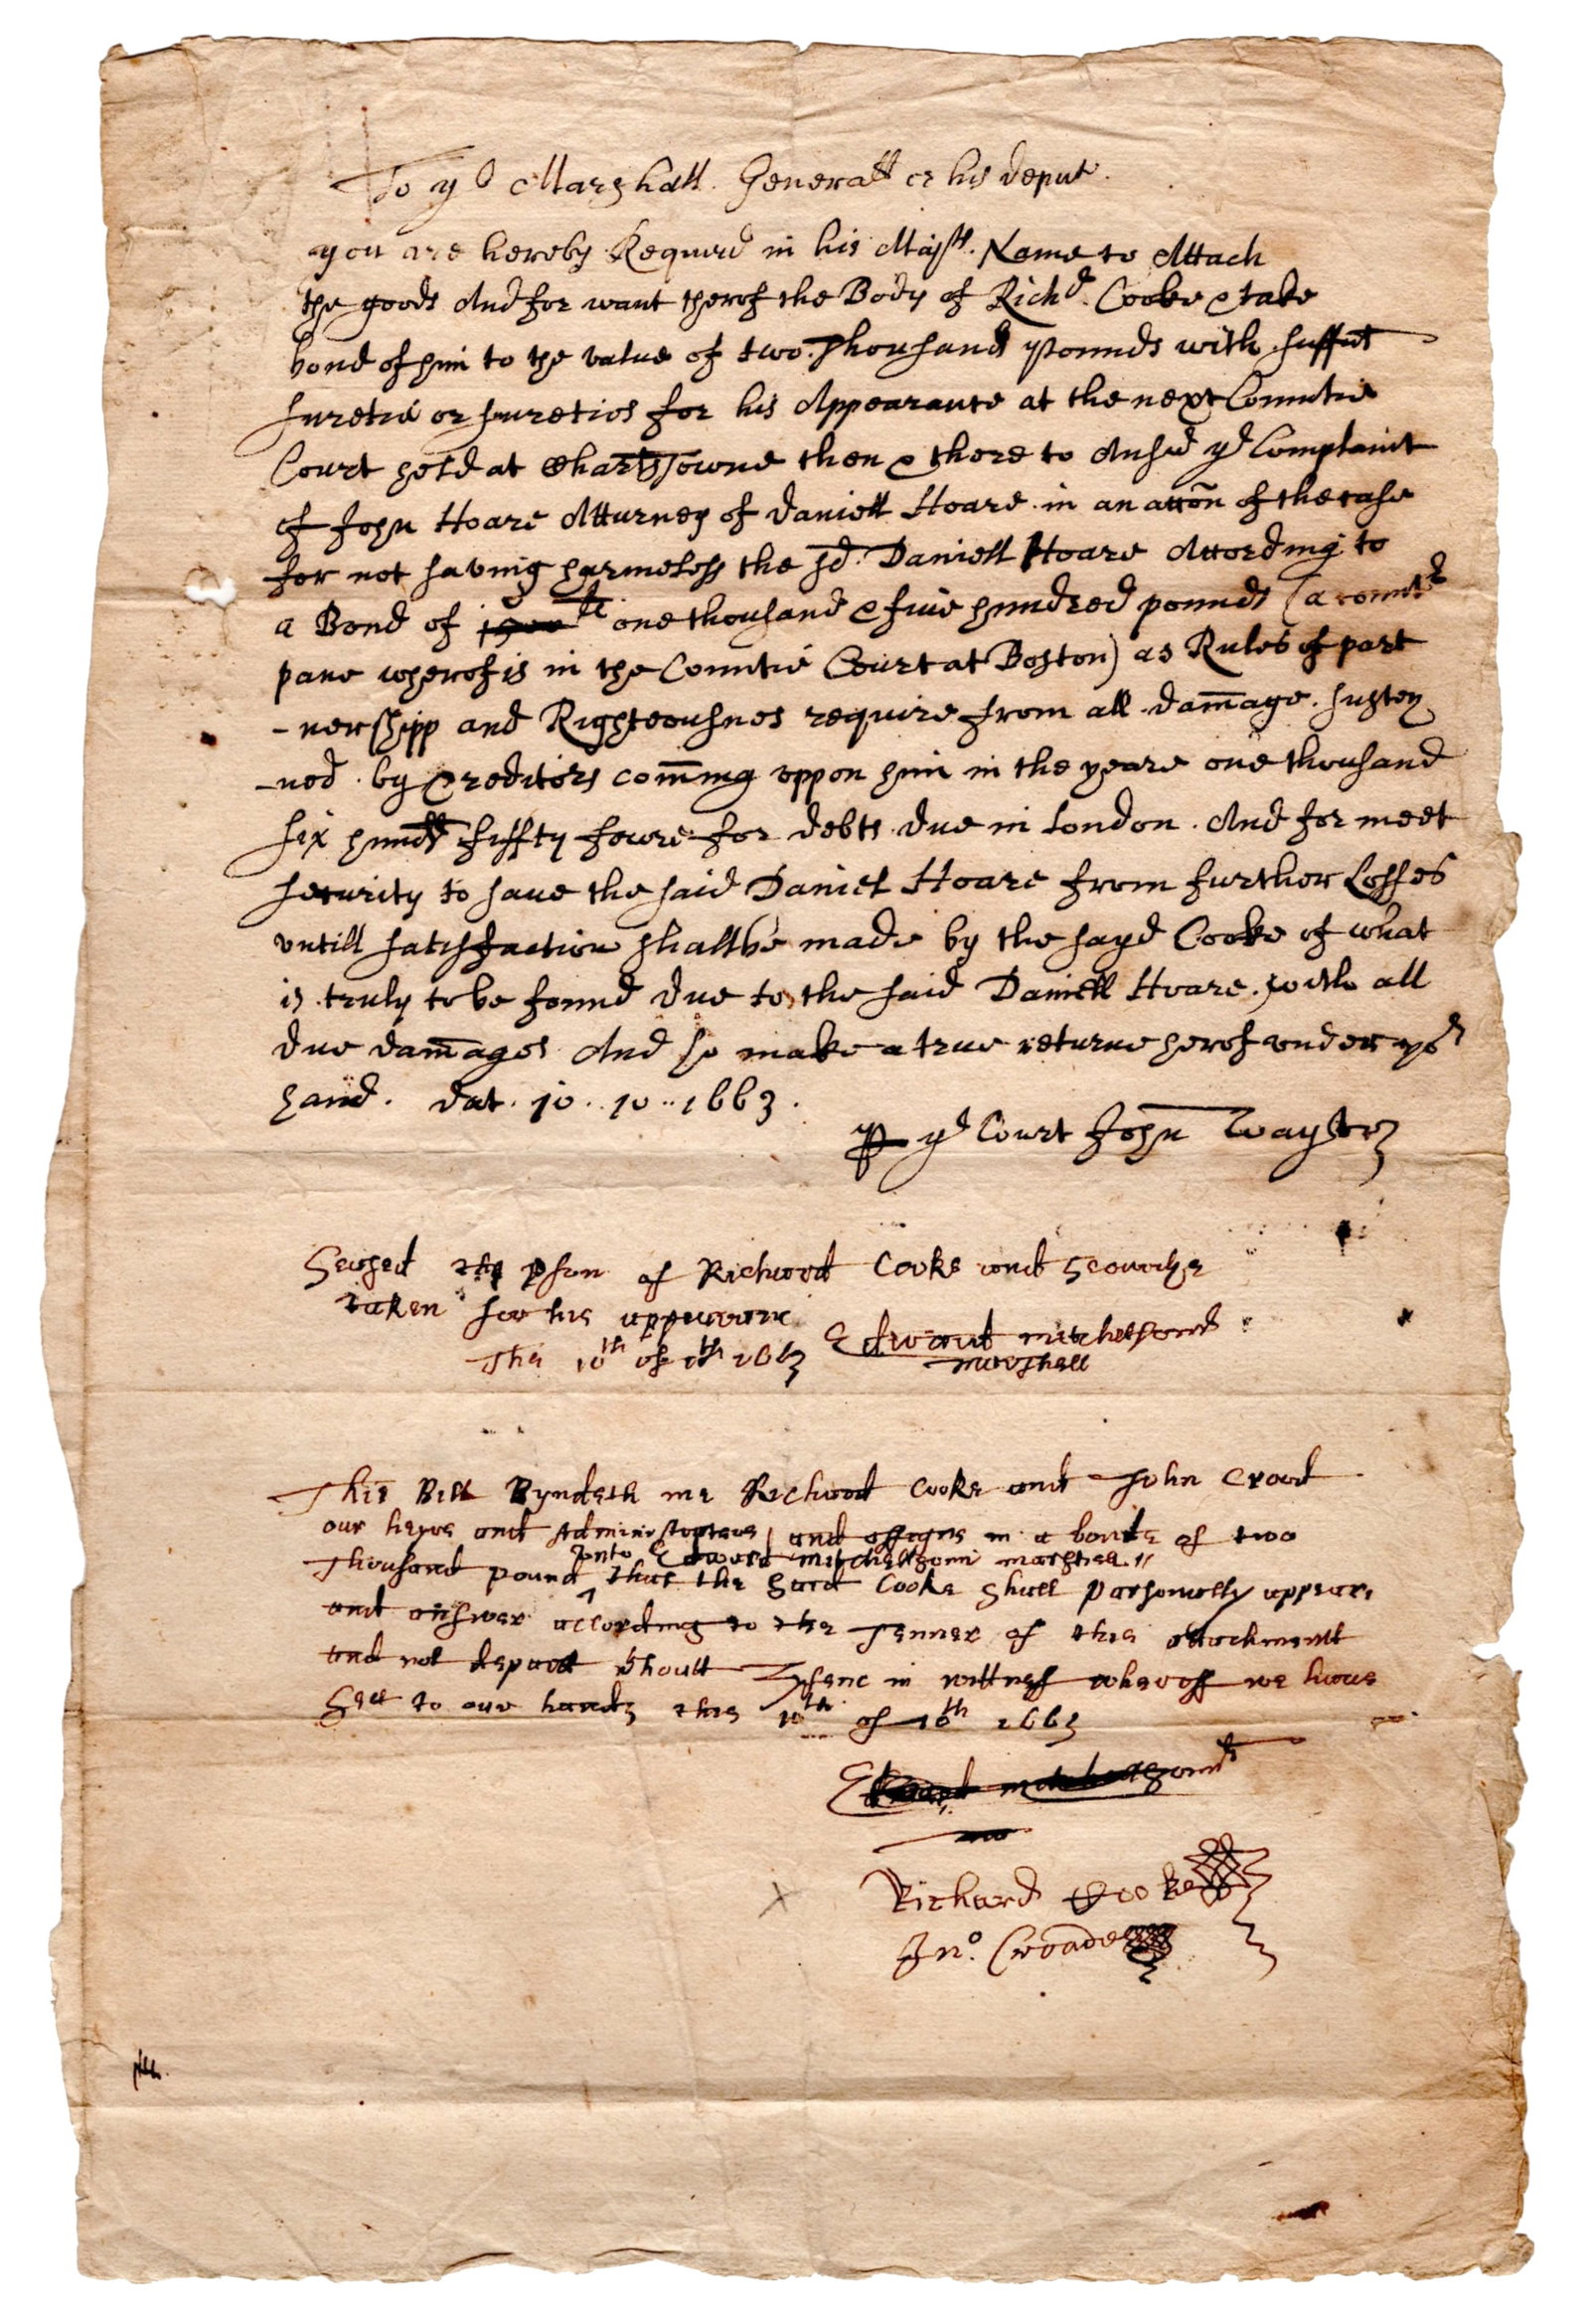 To ye Marshall Generall or his deput.
you are hereby Requird in his Majties. Name to Attach
the goods And for want therof the Body of Richd. Cooke & take
bond of him to the value of two Thousand pounds with suffict
suretie or sureties for his Appearance at the next Countie
Court held at Charlstowne then & there to Answr ye Complaint
of John Hoare Atturney of Daniell Hoare in an accon of the case
for not saving harmeless the sd. Daniell Hoare According to
a Bond of 1500 li one thousand & five hundred pounds (a counter
pane wherof is in the Countie Court at Boston) as Rules of part
-nershipp and Righteousnes require from all damage. sustey
-ned by Creditors coming uppon him in the yeare one thousand
six hundd fiffty foure for debts due in London. And for meet
security to save the said Daniel Hoare from further Losses
untill satisfaction shall be made by the sayd Cooke of what
is truly to be found due to the said Daniell Hoare. with all
due damages And so make a true returne herof under yor
hand. dat. 10. 10. 1663.
P ye Court John Wayte
the pson of Richard Cooke and
taken for his
The 10th of 10th 1663 Edward Mitchelsonn
marshall
This Bill Byndeth me Richard Cooke and John Croad
our heyrs and Administrators and assigns in a bonde of two
unto Edward Mitchellsonn marshall
Thousand pound that the Said Cooke Shall parsonally appear
and answer according to the Tenner of this attachment
and not depart in wittness wheroff we have
Sett to our hands this 10th of 10th 1663
Richard Cooke
Jno. Croade